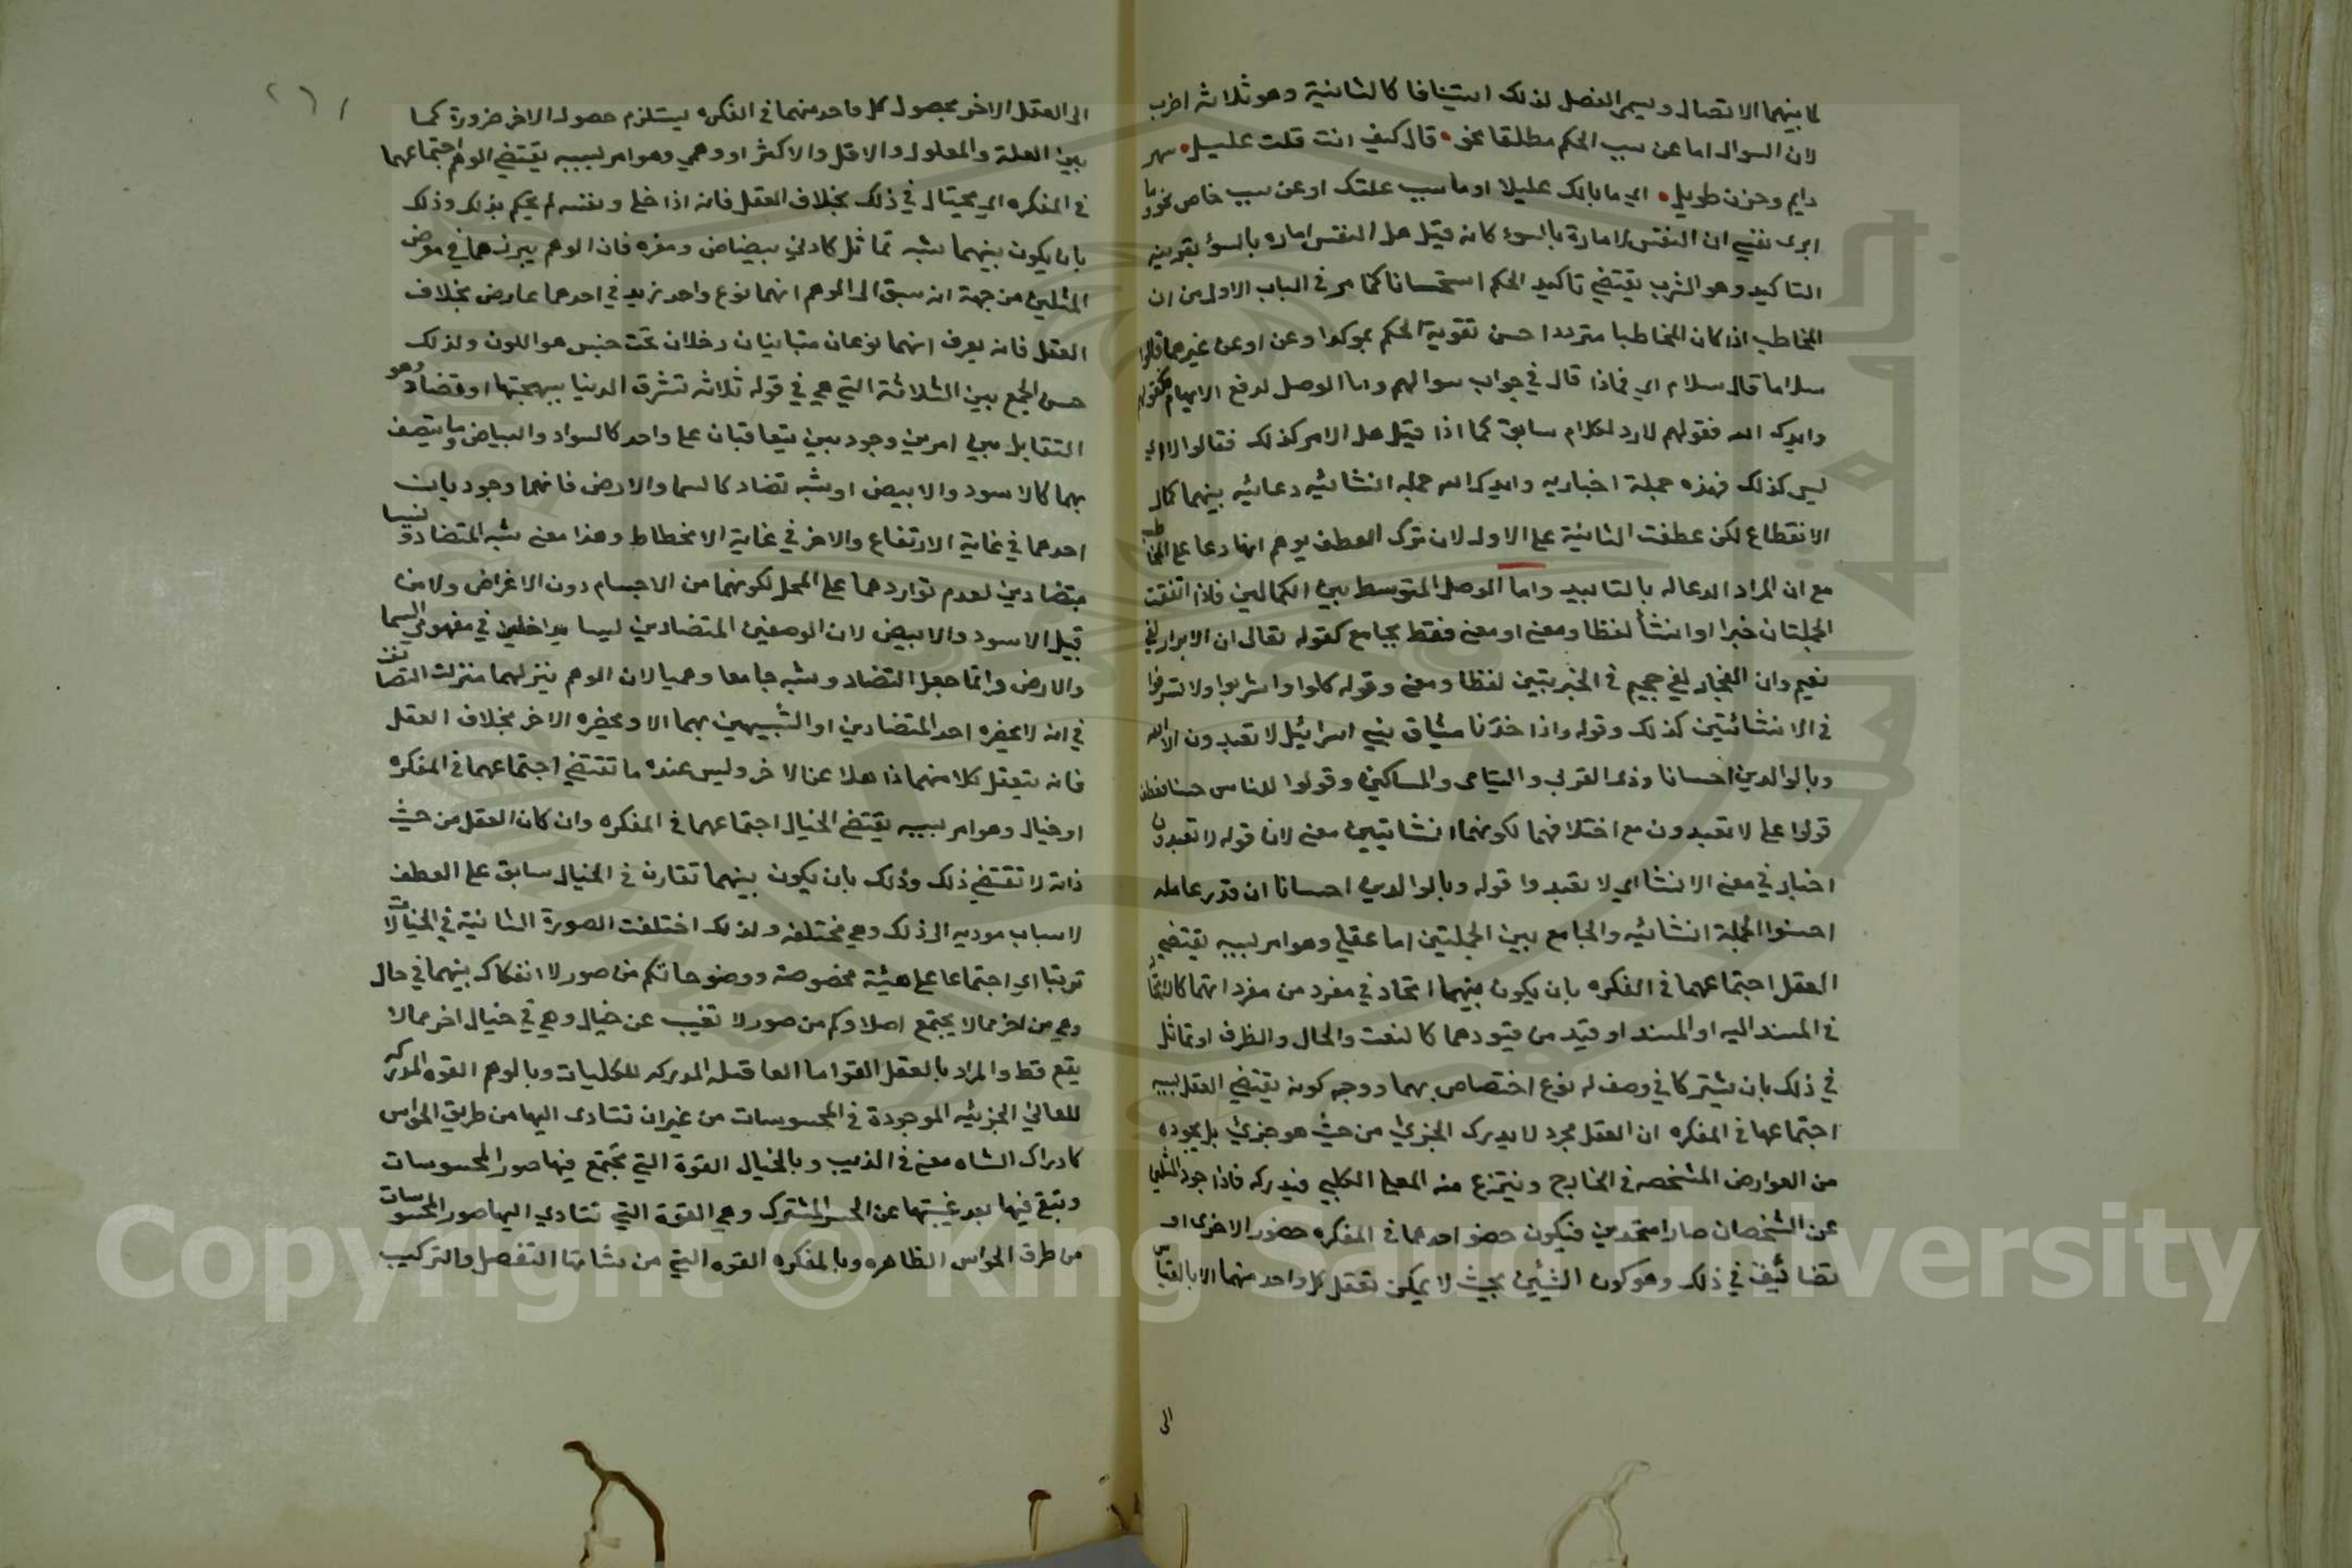 كما بينهما الاتصال ويسمى الفصل لذلك استينافا كالثانية وهو ثلاثة اضرب
لان السوال اما عن سبب الحكم مطلقا نحو قال كيف انت قلت عليل سهر
دايم وحزن طويل اي ما بالك عليلا او ما سبب علتك او عن سبب خاص نحو وما
ابرى نفسي ان النفس لامارة بالسوء كانه قيل هل النفس اماره بالسؤ بقرينه
التاكيد وهو الضرب يقتضي تاكيد الحكم استحسانا كما مر في الباب الاول من ان
المخاطب اذا كان المخاطبا مترددا حسن تقوية الحكم بموكد او عن او عن غيرهما قالوا
سلاما قال سلام اي فماذا قال في جواب سوالهم واما الوصل لدفع الايهام فكقولهم
وايدك الله فقولهم لا رد لكلام سابق كما اذا قيل هل الامر كذلك فقالوا لا اي
ليس كذلك فهذه جملة اخباريه وايدك الله جمله انشائيه دعائيه بينهما كمال
الانقطاع لكن عطفت الثانية على الاوله لان ترك العطف يوهم انها دعا على المخاطب
مع ان المراد الدعا له بالتاييد واما الوصل المتوسط بين الكمالين فاذا اتفقت
الجملتان خبرا او انشأ لفظا ومعنى او معنى فقط بجامع كقوله تعالى ان الابرار لفي
نعيم وان الفجار لفي جحيم في الخبريتين لفظا ومعنى وقوله كلوا واشربوا ولا تسرفوا
في الانشائيتين كذلك وقوله واذا خذنا ميثاق بني اسرائيل لا تعبدون الا الله
وبالوالدين احسانا وذي القربى واليتامى والمساكين وقولوا للناس حسنا فعطف
قولوا على لا تعبدون مع اختلافهما لكونهما انشايتيين معنى لان قوله لا تعبدون
اخبار في معنى الانشا اي لا تعبدوا قوله وبالوالدين احسانا ان قدر عامله
احسنوا الجملة انشائيه والجامع بين الجملتين اما عقلي وهو امر بسببه يقتضي
العقل اجتماعهما في الفكره بان يكون بينهما اتحاد في مفرد من مفرداتهما كالاتحاد
في المسند اليه او المسند او قيد من قيودهما كالنعت والحال والظرف او تماثل
في ذلك بان يشتركا في وصف له نوع اختصاص بهما ووجه كونه يقتضي العقل بسببه
اجتماعها في المفكره ان العقل مجرد لا يدرك الجزئي من حيث هو جزئي بل يجرده
من العوارض المشخصه في الخارج وينتزع منه المعنى الكلي فيدركه فاذا جرد المثلين
عن الشخصان صارا متحدين فيكون حضور احدهما في المفكره حضور الاخرى او
تضائيف في ذلك وهو كون الشيئين بحيث لا يمكن تعقل كل واحد منهما الا بالقياس
الى
١٦٢
الى العقل الاخر بحصول كل واحد منهما في الفكره يستلزم حصول الاخر ضرورة كما
بين العلة والمعلول والاقل والاكثر او وهمي وهو امر بسببه يقتضي الوهم اجتماعهما
في المفكره اي يحتال في ذلك بخلاف العقل فانه اذا خلى ونفسه لم يحكم بذلك وذلك
بان يكون بينهما شبه تماثل كلوني بياض وصفره فان الوهم يبرزهما في معرض
المثلين من جهة انه سبق الى الوهم انهما نوع واحد زيد في احدهما عارض بخلاف
العقل فانه يعرف انهما نوعان متباينان دخلان تحت جنس هو اللون ولذلك
حسن الجمع بين الثلاثة التي هي في قوله ثلاثه تشرق الدنيا ببهجتها او تضاد وهو
التقابل بين امرين وجوديين يتعاقبان على واحد كالسواد والبياض وما يتصف
بهما كالاسود والابيض او شبه تضاد كالسما والارض فانهما وجوديان
احدهما في غاية الارتفاع والاخر في غاية الانحطاط وهذا معنى شبه التضاد وليسا
متضادين لعدم تواردهما على المحل لكونهما من الاجسام دون الاغراض ولا من
قبيل الاسود والابيض لان الوصفين المتضادين ليسا بداخلين في مفهومي السما
والارض وانما جعل التضاد وشبه جامعا وهميا لان الوهم ينزلهما منزلت التضايف
في انه لا يحضره احد المتضادين او الشبيهين بهما الا ويحضره الاخر بخلاف العقل
فانه يتعقل كلا منهما ذاهلا عن الاخر وليس عنده ما تقتضي اجتماعهما في المفكره
او خيال وهو امر بسببه يقتضي الخيال اجتماعهما في المفكره وان كان العقل من حيث
ذاته لا تقتضي ذلك وذلك بان يكون بينهما تقارن في الخيال سابق على العطف
لاسباب موديه الى ذلك وهي مختلفه ولذلك اختلفت الصورة الثانية في الخيالات
ترتبا اي اجتماعا على هيئة مخصوصة ووضوحا فكم من صور لا انفكاك بينهما في خيال
وهي من اخر مما لا يجتمع اصلا وكم من صور لا تغيب عن خيال وهي في خيال اخر مما لا
يقع قط والمراد بالعقل القوا ما العاقله المدركه للكليات وبالوهم القوه المدركه
للمعاني الجزئيه الموجودة في المحسوسات من غير ان تتادى اليها من طريق الحواس
كادراك الشاه معنى في الذيب وبالخيال القوة التي تجتمع فيها صور المحسوسات
وتبقى فيها بعد غيبتها عن الحس المشترك وهي القوة التي تتادي اليها صور المحسوسات
من طرق الحواس الظاهره وبالمفكره القوه التي من شانها التفصل والتركيب
Copyright © King Saud University